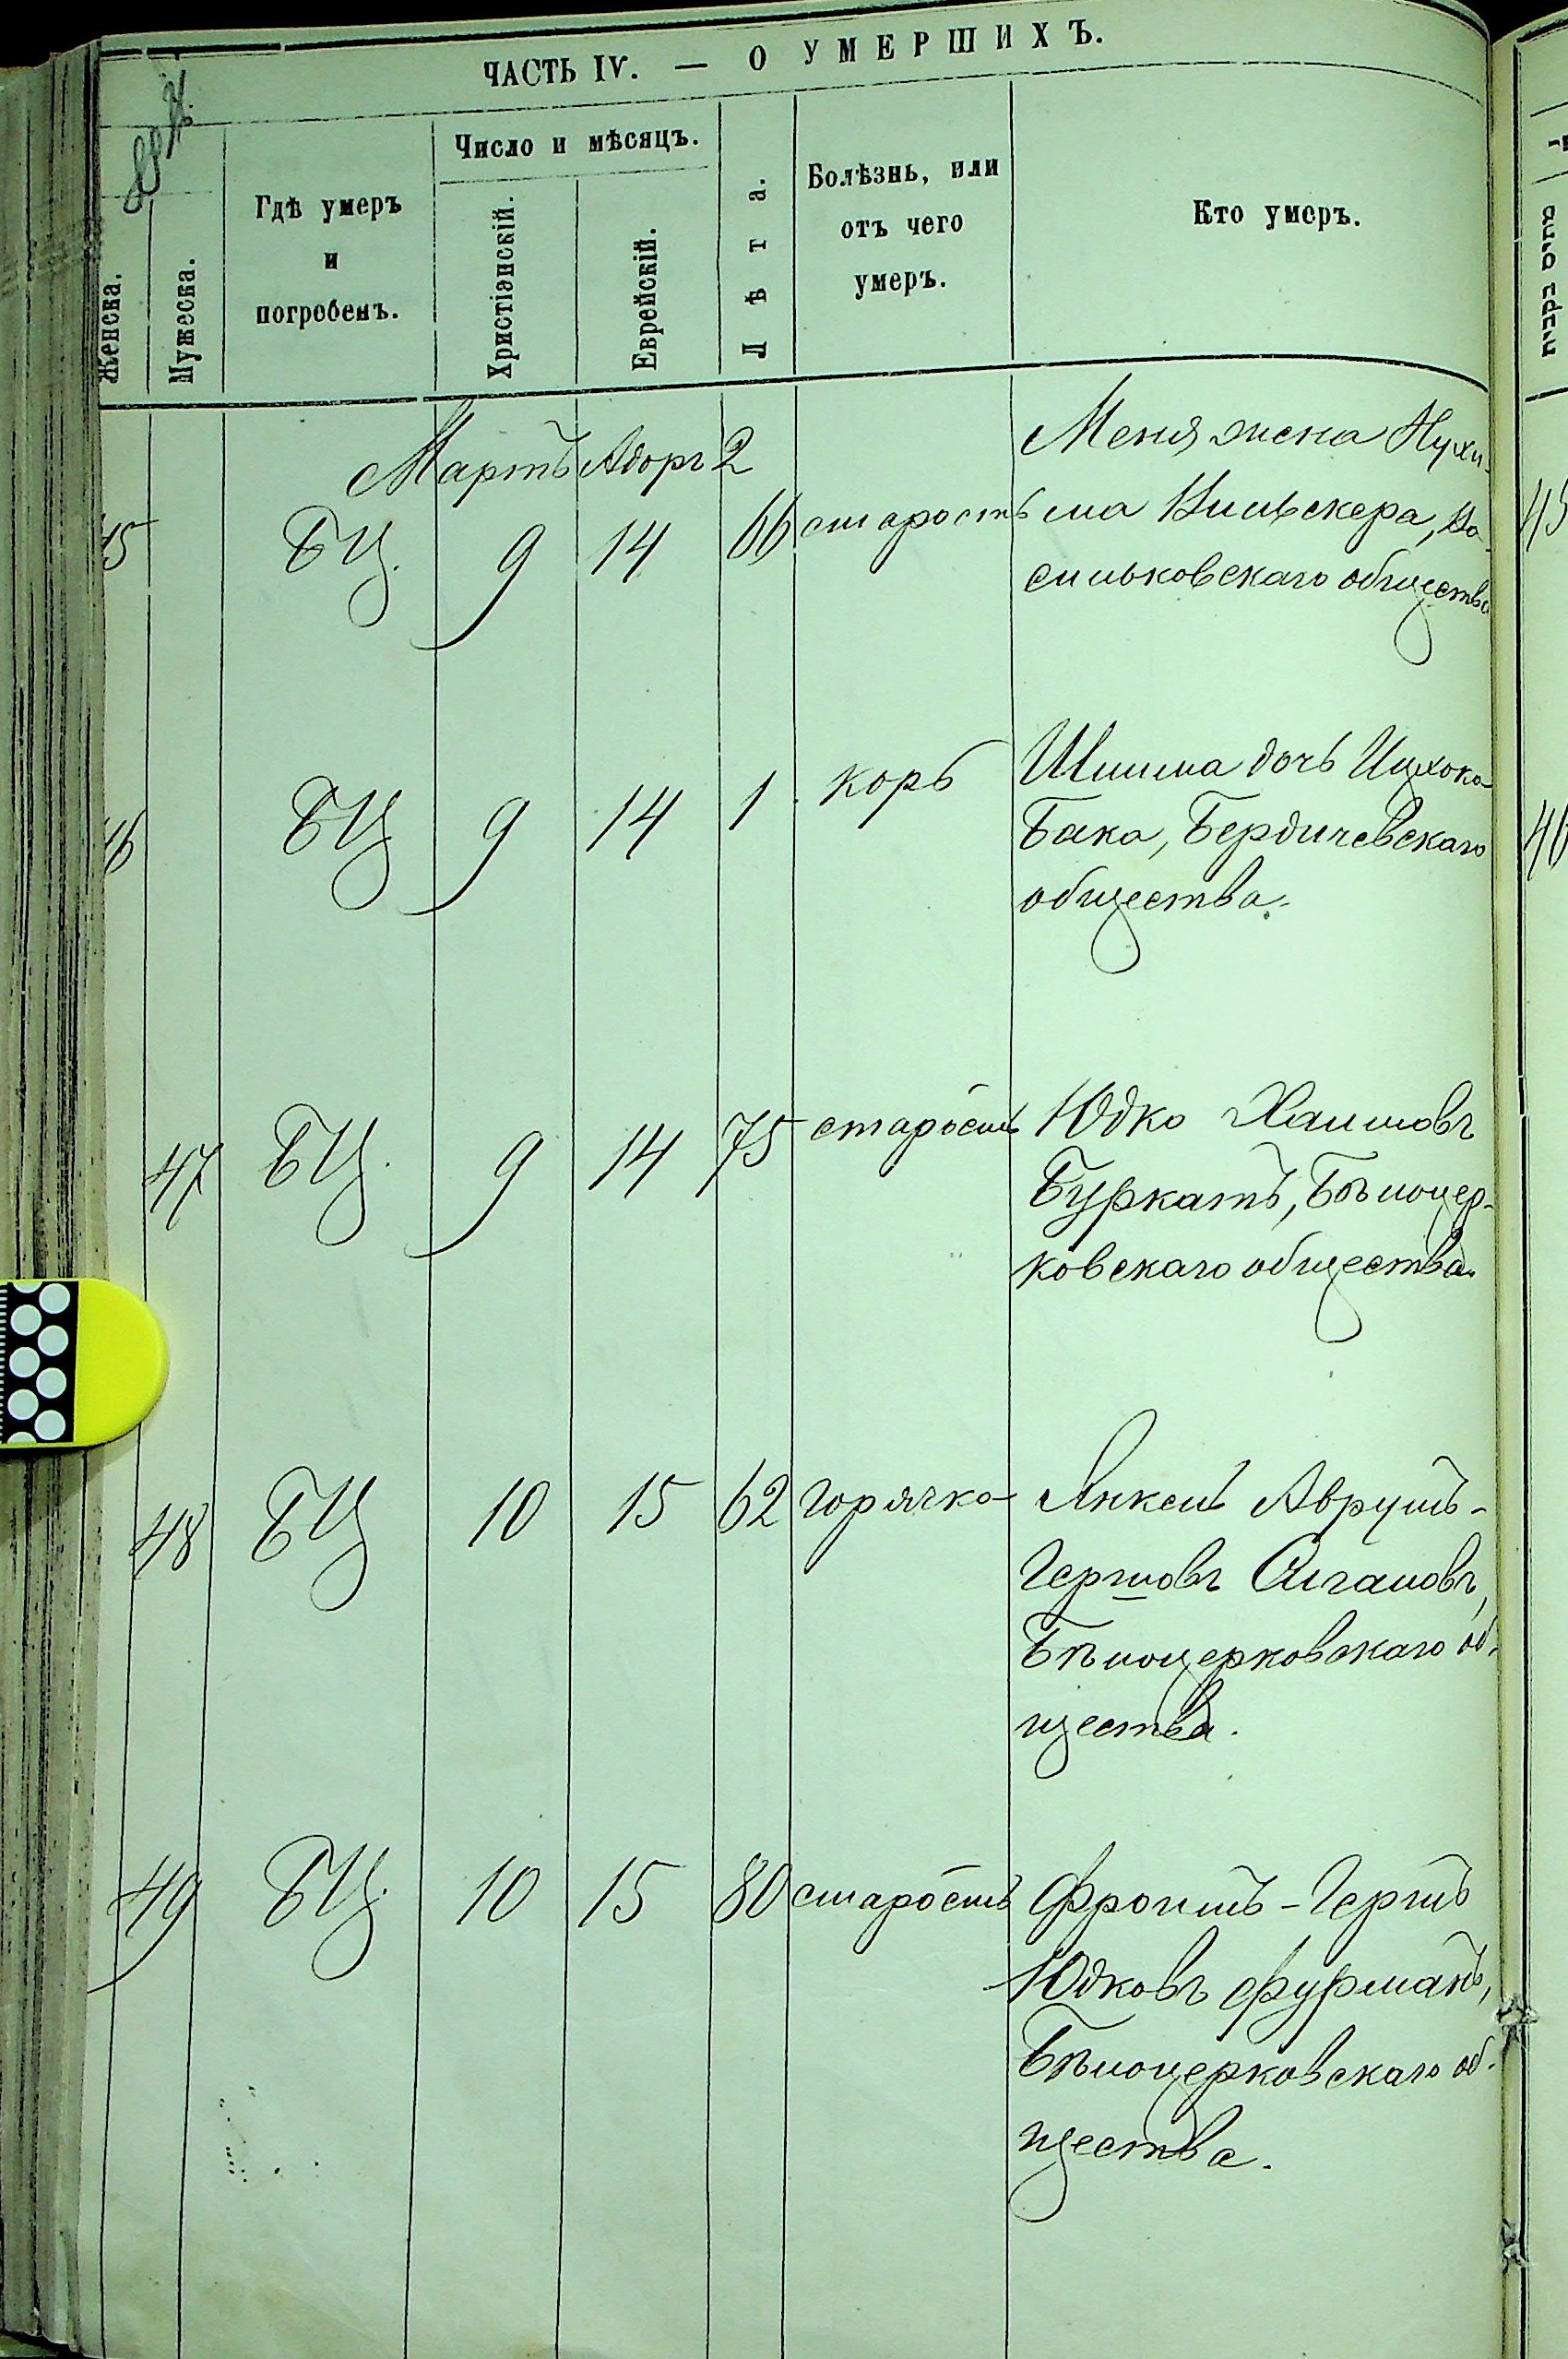 ЧАСТЬ IV. — О УМЕРШИХЪ.
Женска.
Мужеска.
Гдѣ умеръ
и
погребенъ.
Число и мѣсяцъ.
Христіанскій.
Еврейскій.
Лѣта.
Болѣзнь, или
отъ чего
умеръ.
Кто умеръ.
Мартъ Адоръ 2
45 БЦ. 9 14 66 старость
Меня жена Нухи-
ма Вильскера, Ва-
сильковскаго общества
46 БЦ 9 14 1 корь
дочь Ицхока
Бака, Бердичевскаго
общества.
47 БЦ. 9 14 75 старость
Юдко Хаимовъ
Буркатъ, Бѣлоцер-
ковскаго общества.
48 БЦ 10 15 62 горячка
Янкель Аврумъ-
Гершовъ
Бѣлоцерковскаго об-
щества.
49 БЦ. 10 15 80 старость
Фроимъ-Гершъ
Юдковъ Фурманъ,
Бѣлоцерковскаго об-
щества.
45
46